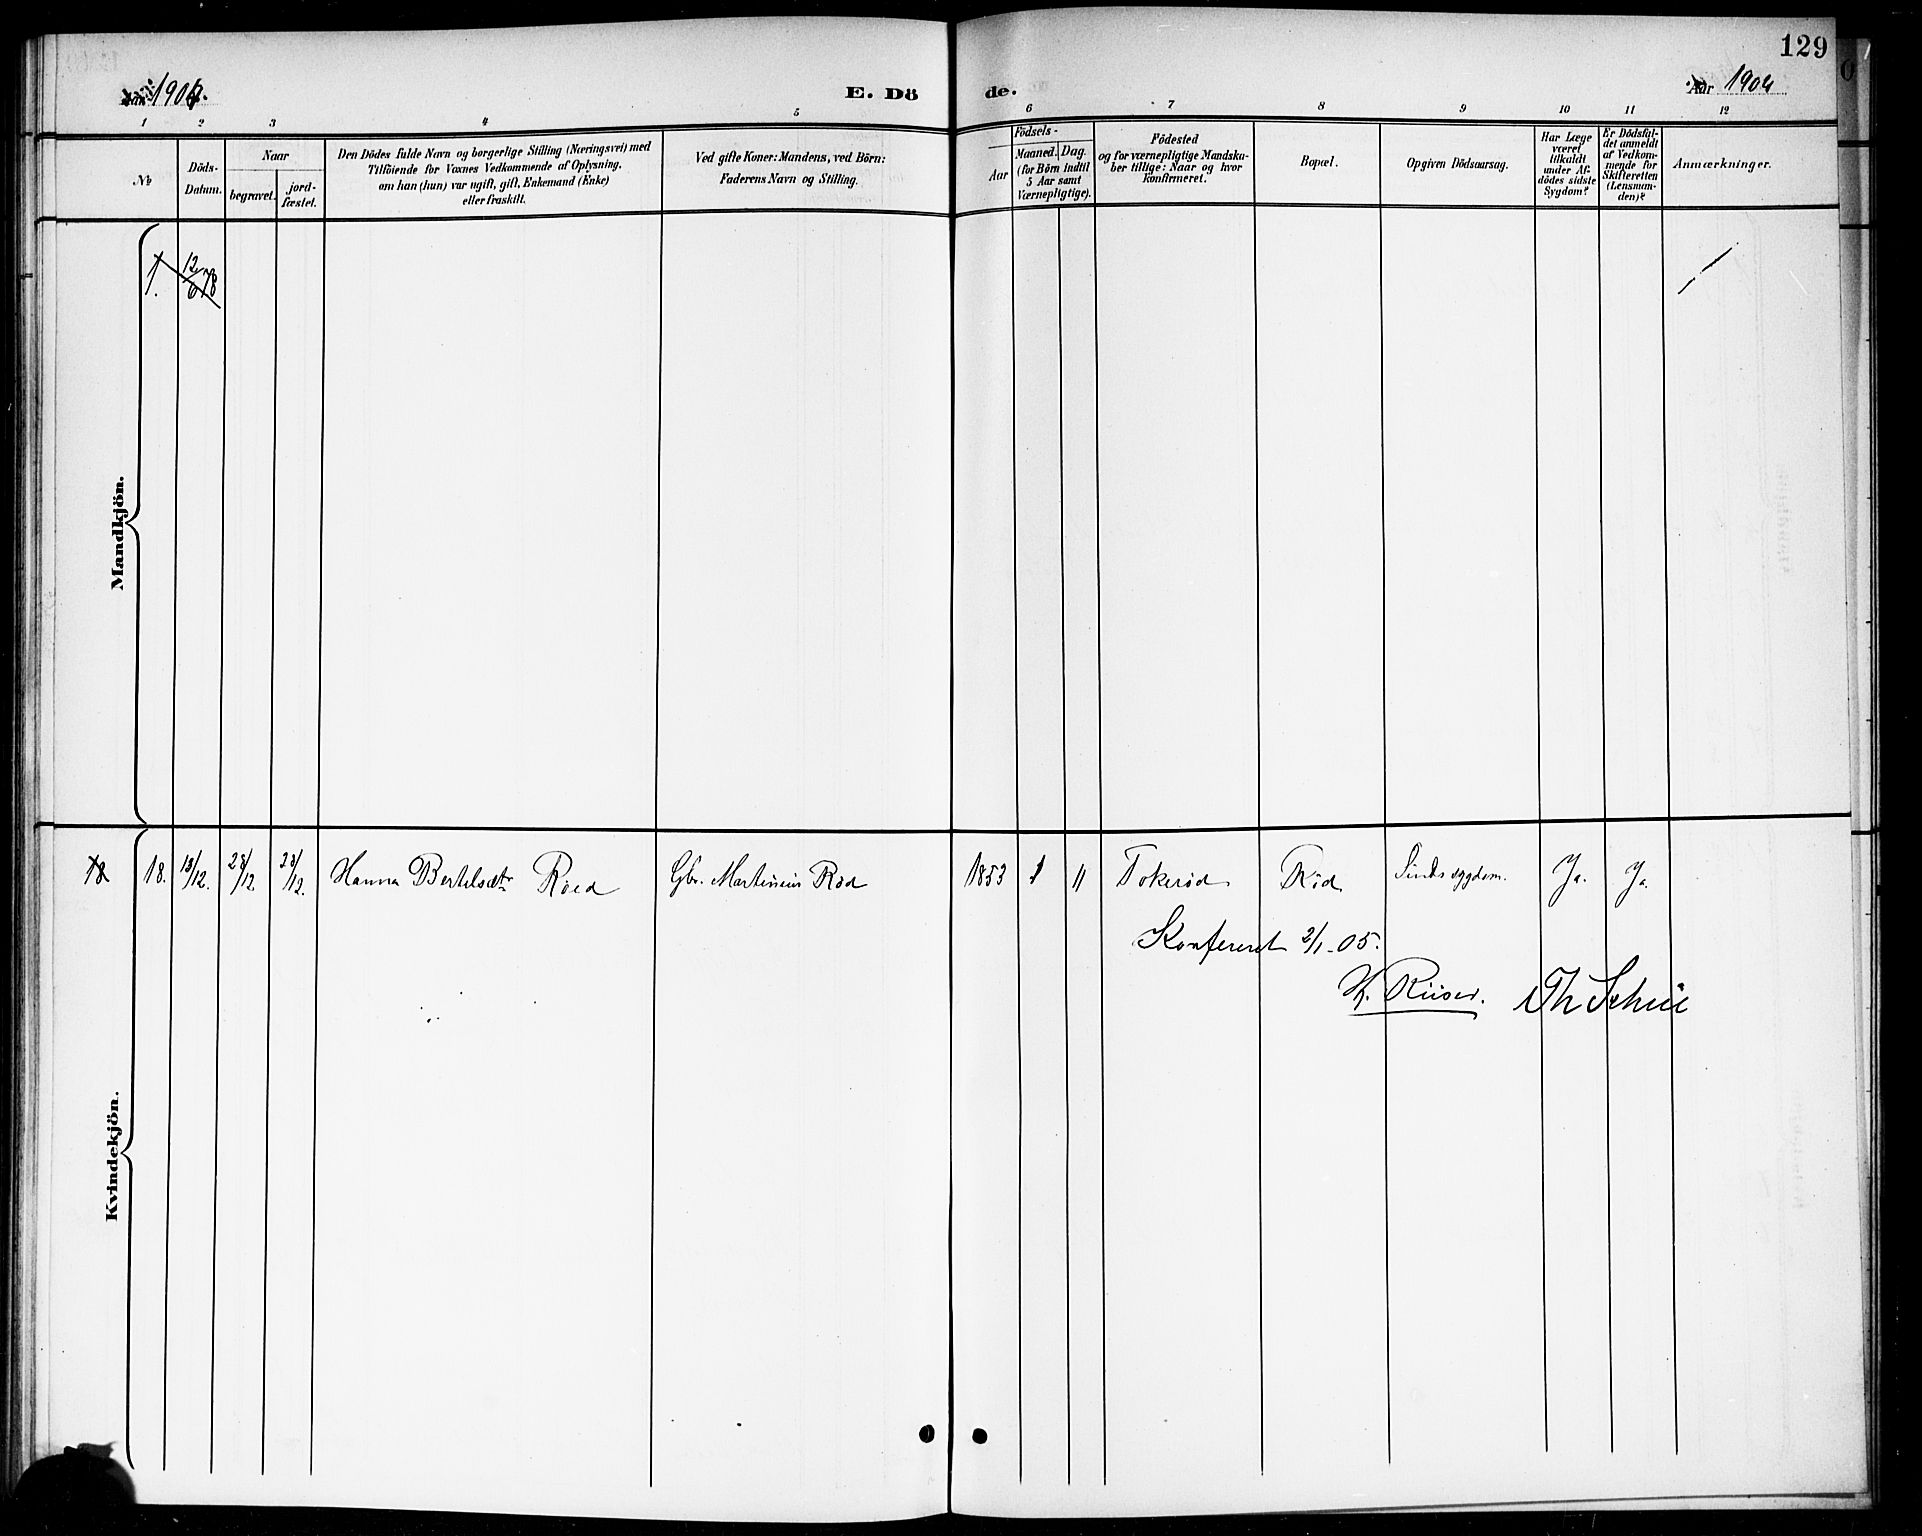 129
Aar 1904.
E. Dö
de.
Aar 1904
1 2 3 4 5 6 7 8 9 10 11 12
No
Döds-
Datum.
Naar
begravet.
jord-
fæstet.
Den Dödes fulde Navn og borgerlige Stilling (Næringsvei) med
Tilföiende for Voxnes Vedkommende af Oplysning,
om han (hun) var ugift, gift, Enkemand (Enke)
eller fraskilt.
Ved gifte Koner: Mandens, ved Börn:
Faderens Navn og Stilling.
Födsels-
Aar
Maaned.
Dag.
(for Börn indtil
5 Aar samt
Værnepligtige).
Födested
og for værnepligtige Mandska-
ber tillige: Naar og hvor
konfirmeret.
Bopæl.
Opgiven Dödsaarsag.
Har Læge
været
tilkaldt
under Af-
dödes sidste
Sygdom?
Er Dödsfal-
det anmeldt
af Vedkom-
mende for
Skifteretten
(Lensman-
den)?
Anmærkninger.
Mandkjön.
1. 12/6 78
Kvindekjön.
18 18. 18/12. 28/12 28/12. Hanna Bertelsdtr Röed Gbr. Martinius Röd 1853 1 11 Tokeröd Röd Sindssygdom. Ja. Ja.
Konfereret 2/1-05.
H. Riiser. Th Schiöe